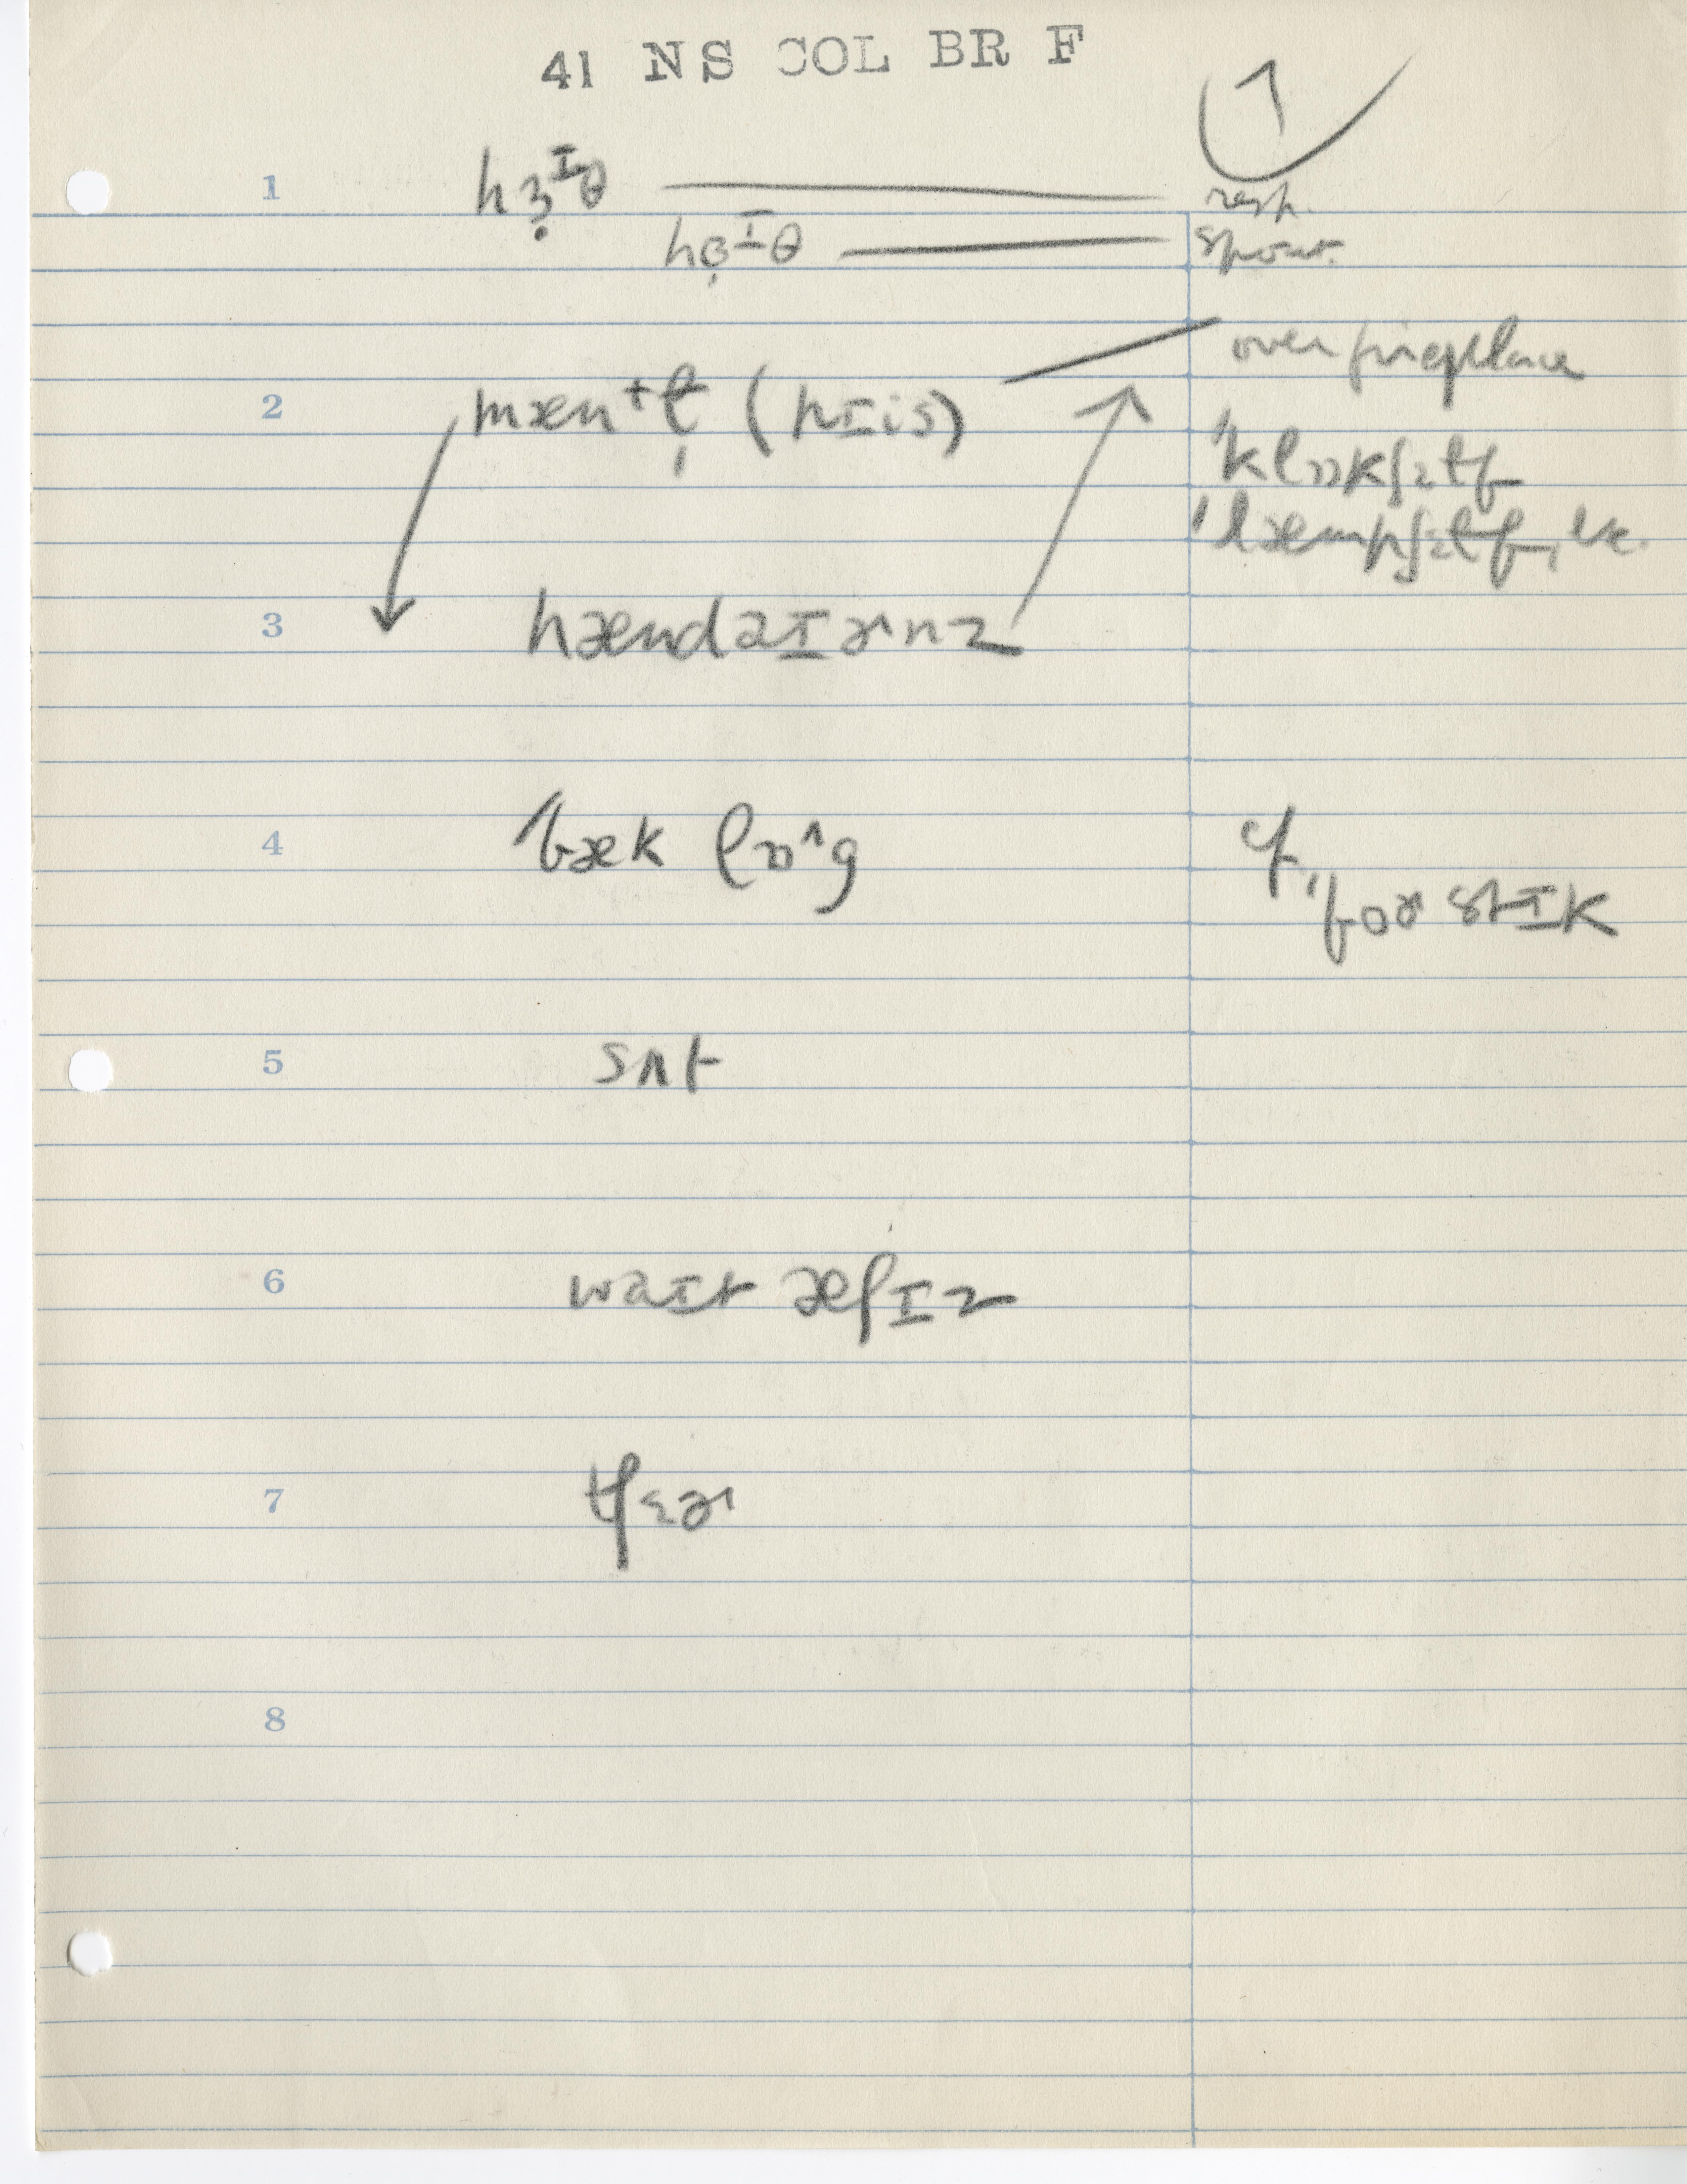 41 NS COL BR F
1
1 hɜ̣ᴵθ resp.
hɞ̣ᴵθ spont.
2 mæn⁺ɫ̩ (pɪis) over fireplace
ˈklɒɒkʃɛɫf
ˈlæmpʃɛɫf, etc.
3 hændaɪɚnz
4 ˈbæk lɒ^g cf.
ˈforstɪk
5 sʌt
6 waɪt æʃɪz
7 tʃɛɚ
8